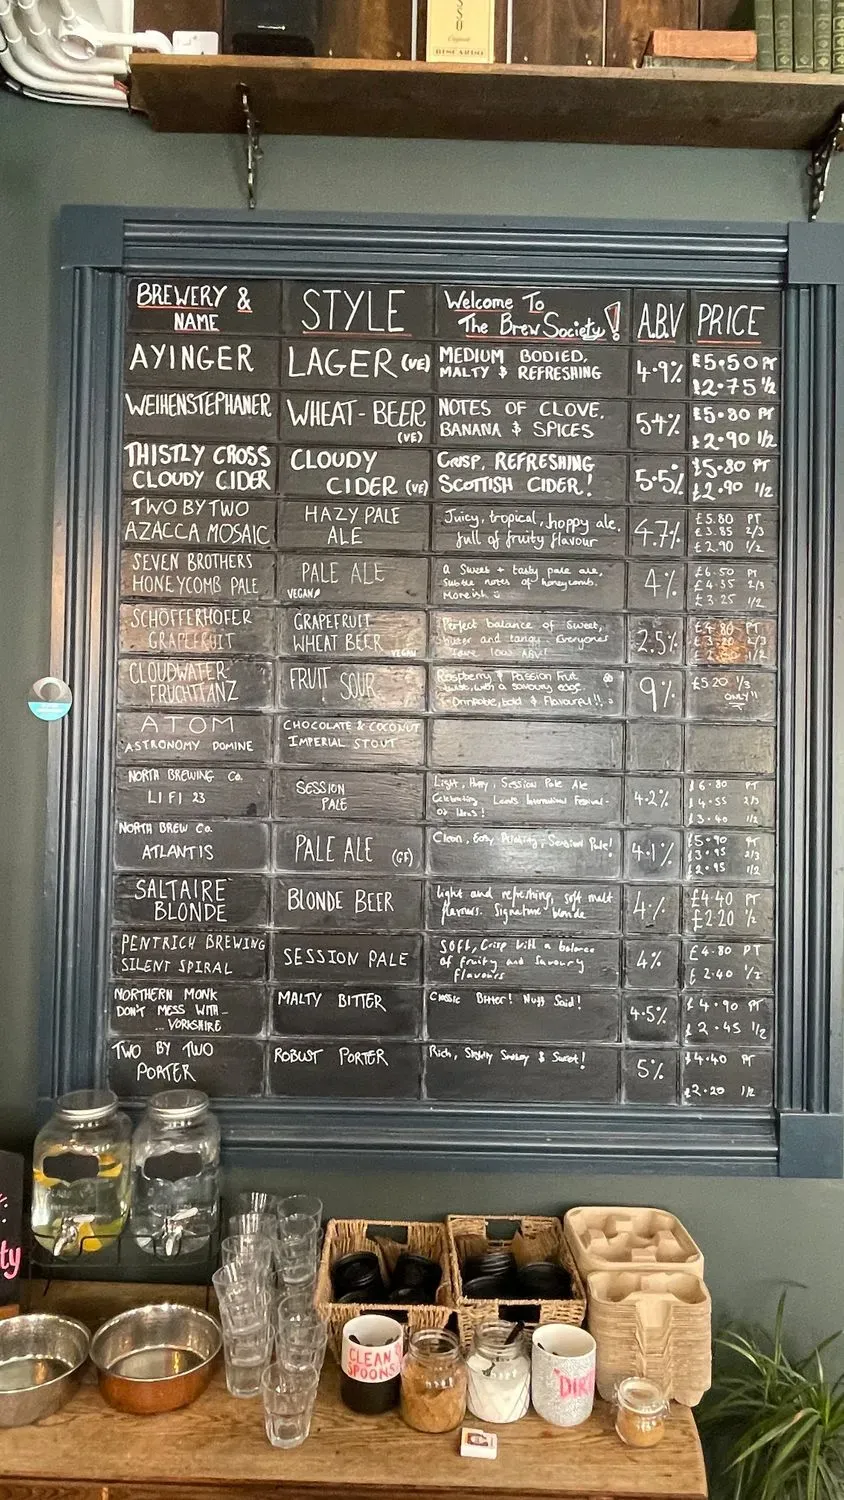 BREWERY &
NAME
STYLE
Welcome To
The Brew Society!
A.B.V
PRICE
AYINGER
LAGER (VE)
MEDIUM BODIED,
MALTY & REFRESHING
4.9%
£5.50 PT
£2.75 1/2
WEIHENSTEPHANER
WHEAT-BEER
(VE)
NOTES OF CLOVE,
BANANA & SPICES
5.4%
£5.80 PT
£2.90 1/2
THISTLY CROSS
CLOUDY CIDER
CLOUDY
CIDER (VE)
CRISP, REFRESHING
SCOTTISH CIDER!
5.5%
£5.80 PT
£2.90 1/2
TWO BY TWO
AZACCA MOSAIC
HAZY PALE
ALE
Juicy, tropical, hoppy ale,
full of fruity flavour
4.7%
£5.80 PT
£3.85 2/3
£2.90 1/2
SEVEN BROTHERS
HONEYCOMB PALE
PALE ALE
VEGAN
a Sweet + tasty pale ale,
Subtle notes of honeycomb.
Moreish
4%
£6.50 PT
£4.35 2/3
£3.25 1/2
SCHÖFFERHOFER
GRAPEFRUIT
GRAPEFRUIT
WHEAT BEER
VEGAN
Perfect balance of Sweet,
bitter and tangy. Everyones
fave low ABV!
2.5%
£4.80 PT
2/3
1/2
CLOUDWATER-
FRUCHTTANZ
FRUIT SOUR
Raspberry & Passion Fruit
with a savoury edge.
Drinkable, bold & Flavourful!!
9%
£5.20 1/3
ONLY!!
ATOM
ASTRONOMY DOMINE
CHOCOLATE & COCONUT
IMPERIAL STOUT
NORTH BREWING Co.
LIFI 23
SESSION
PALE
Light, Hoppy, Session Pale Ale
Celebrating Leeds International Festival
of Ideas!
4.2%
£6.80 PT
£4.55 2/3
£3.40 1/2
NORTH BREW Co.
ATLANTIS
PALE ALE (GF)
Clean, Easy Drinking, Session Pale!
4.1%
£5.90 PT
£3.95 2/3
£2.95 1/2
SALTAIRE
BLONDE
BLONDE BEER
light and refreshing, soft malt
flavours. Signature blonde
4%
£4.40 PT
£2.20 1/2
PENTRICH BREWING
SILENT SPIRAL
SESSION PALE
SOFT, Crisp with a balance
of fruity and savoury
flavours
4%
£4.80 PT
£2.40 1/2
NORTHERN MONK
DON'T MESS WITH-
...YORKSHIRE
MALTY BITTER
Classic Bitter! Nuff Said!
4.5%
£4.90 PT
£2.45 1/2
TWO BY TWO
PORTER
ROBUST PORTER
Rich, Slightly Smokey & Sweet!
5%
£4.40 PT
£2.20 1/2
ty
CLEAN
SPOONS
DIR